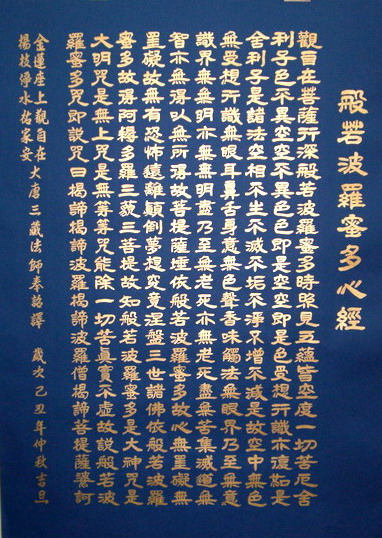 般若波羅蜜多心經
觀自在菩薩行深般若波羅蜜多時照見五蘊皆空度一切苦厄舍
利子色不異空空不異色色即是空空即是色受想行識亦復如是
舍利子是諸法空相不生不滅不垢不淨不增不減是故空中無色
無受想行識無眼耳鼻舌身意無色聲香味觸法無眼界乃至無意
識界無無明亦無無明盡乃至無老死亦無老死盡無苦集滅道無
智亦無得以無所得故菩提薩埵依般若波羅蜜多故心無罣礙無
罣礙故無有恐怖遠離顛倒夢想究竟涅盤三世諸佛依般若波羅
蜜多故得阿耨多羅三藐三菩提故知般若波羅蜜多是大神咒是
大明咒是無上咒是無等等咒能除一切苦真實不虛故說般若波
羅蜜多咒即說咒曰揭諦揭諦波羅揭諦波羅僧揭諦菩提薩婆訶
金蓮座上觀自在
楊枝淨水祐家安
大唐三藏法師奉詔譯
歲次乙丑年仲秋吉旦